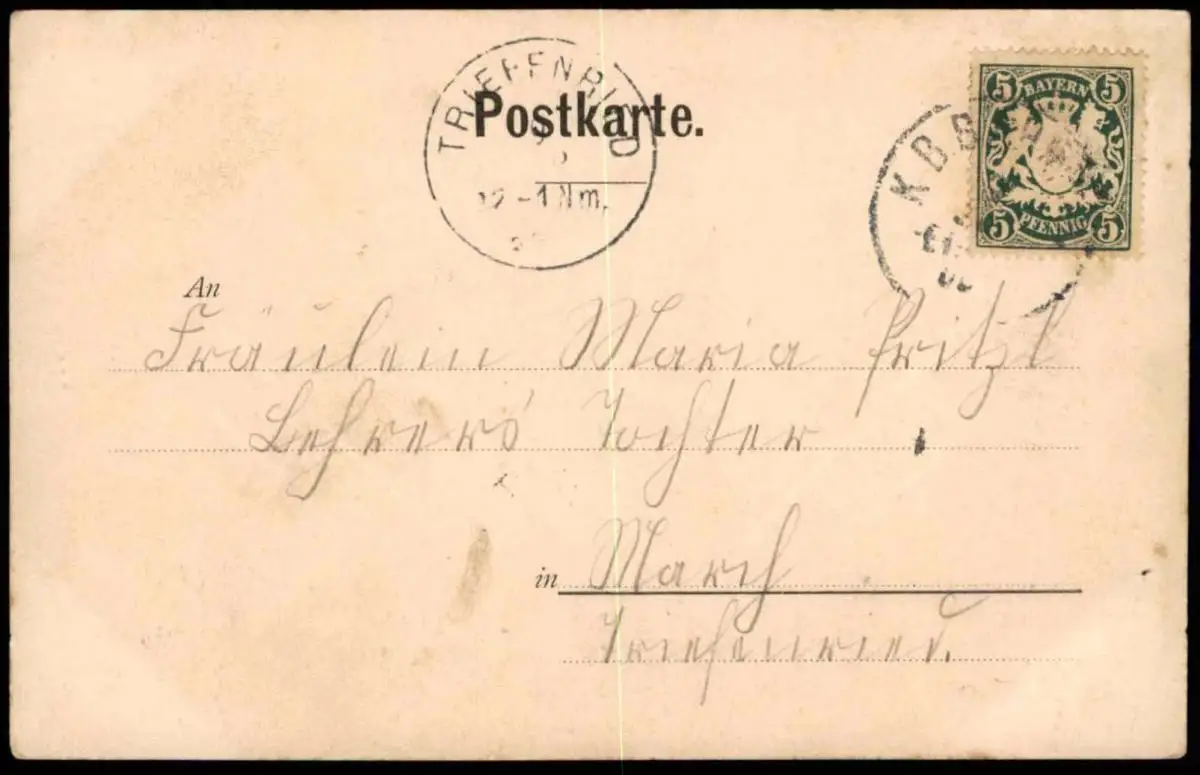 TRIEFENRIED
12-1Nm.
Postkarte.
5 BAYERN 5
5 PFENNIG 5
An
Fräulein Maria Pritzl
Lehrers Tochter
in March
Triefenried.